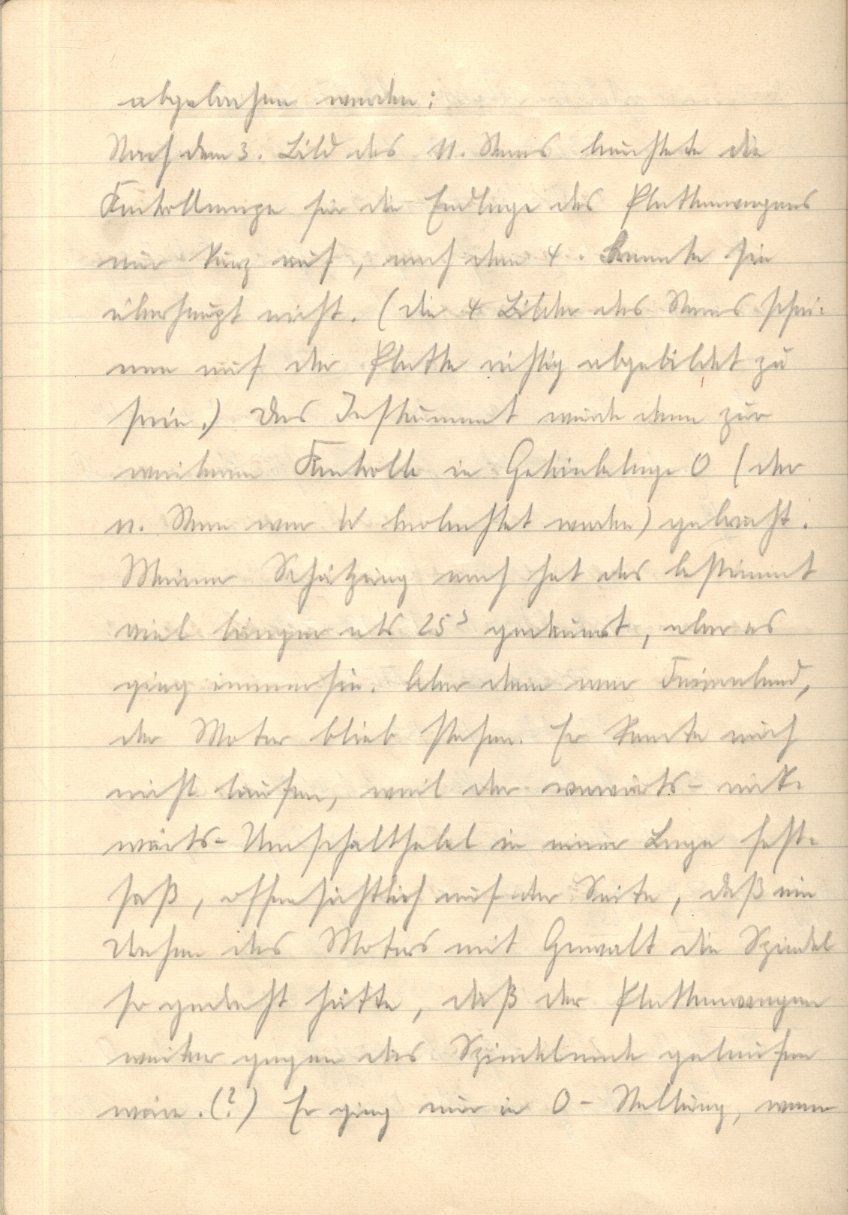 abgebrochen werden:
Nach dem 3. Bild des 11. Sterns leuchtete die
Kontrollampe für die Endlage des Plattenwagens
nur kurz auf, nach dem 4. brannte sie
überhaupt nicht. (die 4 Bilder des Sterns schei-
nen auf der Platte richtig abgebildet zu
sein.) Das Instrument wurde dann zur
weiteren Kontrolle in Getriebelage 0 (der
11. Stern war W beobachtet worden) gebracht.
Meiner Schätzung nach hat das bestimmt
viel länger als 25ˢ gedauert, aber es
ging immerhin. Aber dann war Feierabend,
der Motor blieb stehen. Er konnte auch
nicht laufen, weil der vorwärts- rück-
wärts- Umschalthebel in einer Lage fest-
saß, offensichtlich auf der Seite, daß ein
Drehen des Motors mit Gewalt die Spindel
so gedreht hätte, daß der Plattenwagen
weiter gegen das Spindelende gelaufen
wäre. (?) Er ging nur in 0 - Stellung, wenn